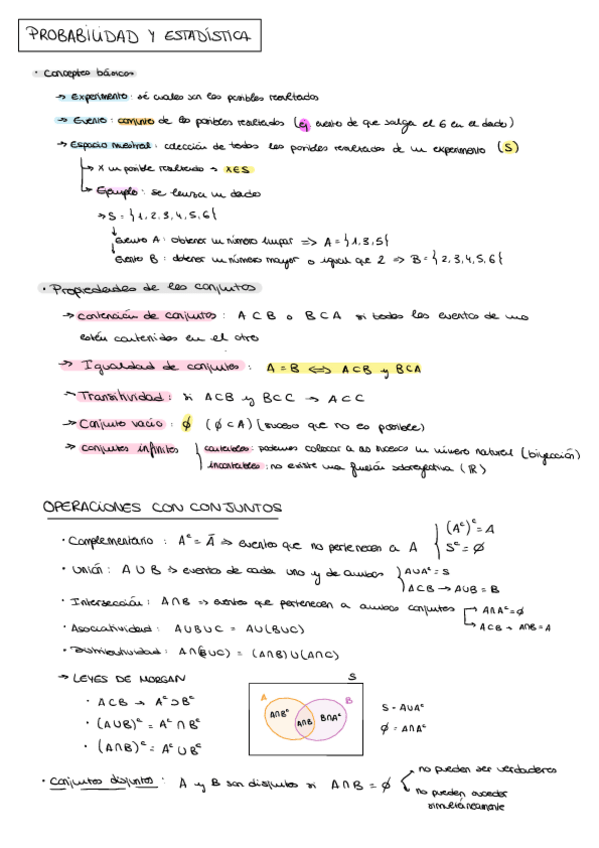 PROBABILIDAD Y ESTADÍSTICA
· Conceptos básicos
→ Experimento: sé cuales son los posibles resultados
→ Evento: conjunto de los posibles resultados (ej evento de que salga el 6 en el dado)
→ Espacio muestral: colección de todos los posibles resultados de un experimento (S)
→ X un posible resultado → X∈S
→ Ejemplo: se lanza un dado
→ S = {1, 2, 3, 4, 5, 6}
Evento A: obtener un número impar => A = {1, 3, 5}
Evento B: obtener un número mayor o igual que 2 => B = {2, 3, 4, 5, 6}
· Propiedades de los conjuntos
→ contención de conjuntos: A ⊂ B o B ⊂ A si todos los eventos de uno
están contenidos en el otro
→ Igualdad de conjuntos: A = B <=> A⊂B y B⊂A
→ Transitividad: si A⊂B y B⊂C → A⊂C
→ Conjunto vacío: ∅ (∅⊂A) (suceso que no es posible)
→ conjuntos infinitos { contables: podemos colocar a los sucesos un número natural (biyección)
incontables: no existe una función sobreyectiva (ℝ)
OPERACIONES CON CONJUNTOS
· Complementario: Aᶜ = Ā => eventos que no pertenecen a A { (Aᶜ)ᶜ = A
Sᶜ = ∅
· Unión: A∪B => eventos de cada uno y de ambos } A∪Aᶜ = S
A⊂B → A∪B = B
· Intersección: A∩B => eventos que pertenecen a ambos conjuntos → A∩Aᶜ = ∅
→ A⊂B → A∩B = A
· Asociatividad: A∪B∪C = A∪(B∪C)
· Distributividad: A∩(B∪C) = (A∩B)∪(A∩C)
→ LEYES DE MORGAN
· A⊂B → Aᶜ⊃Bᶜ
· (A∪B)ᶜ = Aᶜ∩Bᶜ
· (A∩B)ᶜ = Aᶜ∪Bᶜ
S
A B
A∩Bᶜ A∩B B∩Aᶜ
S = A∪Aᶜ
∅ = A∩Aᶜ
· Conjuntos disjuntos: A y B son disjuntos si A∩B = ∅ < no pueden ser verdaderos
no pueden suceder
simultáneamente